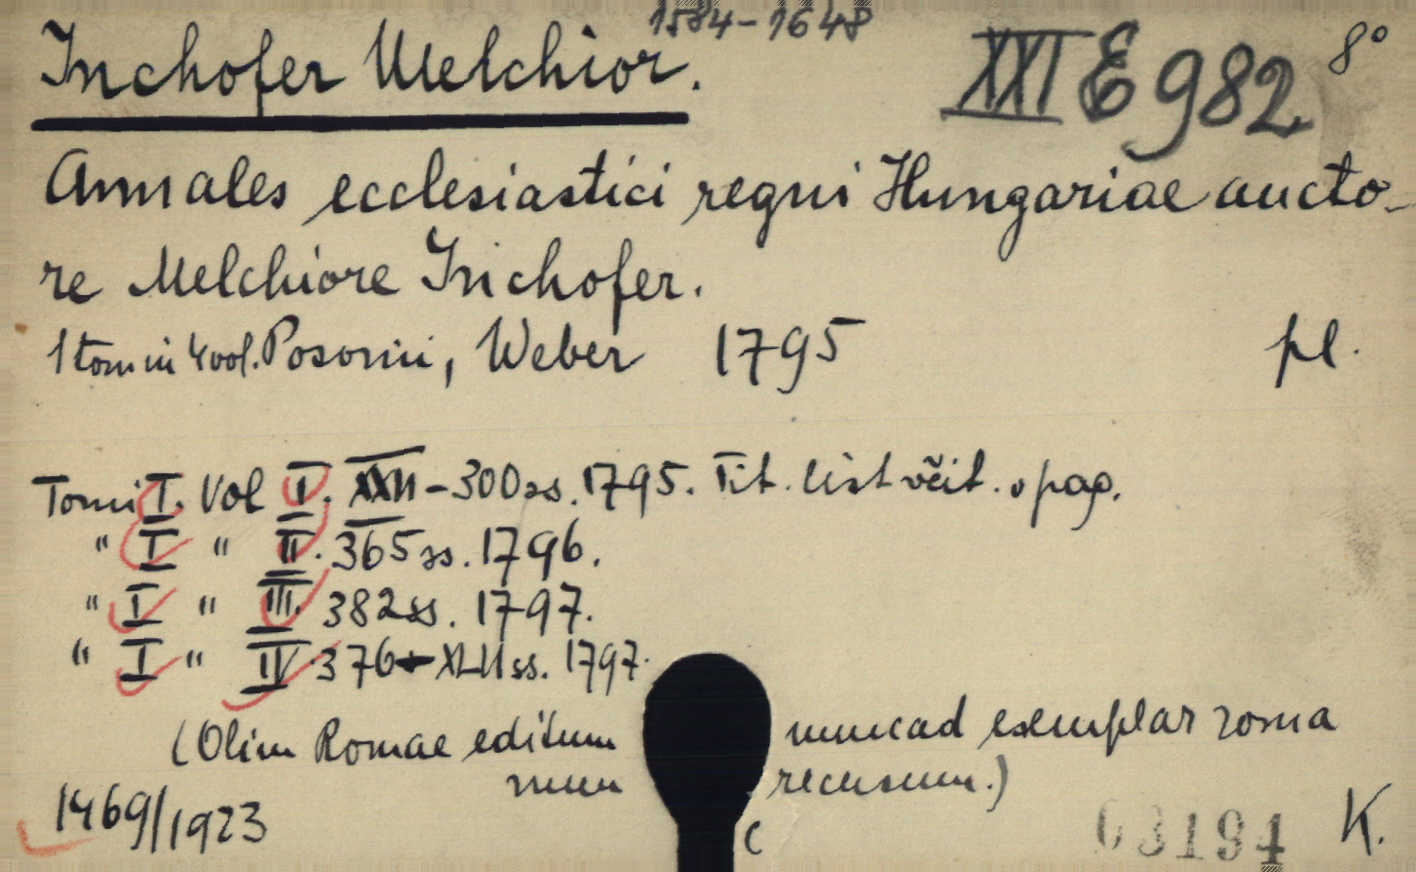 1584-1648
Inchofer Melchior.
XXI E 982 8°
Annales ecclesiastici regni Hungariae aucto-
re Melchiore Inchofer.
1 tom in 4 vol. Posonii, Weber 1795 pl.
Tomi I. Vol I. XXII-300 ss. 1795. Tit. list včit. v pag.
" I " II. 365 ss. 1796.
" I " III. 382 ss. 1797.
" I " IV. 376 + XLII ss. 1797.
(Olim Romae editum nunc ad exemplar roma
num recusum.)
1469/1923
C
63194 K.